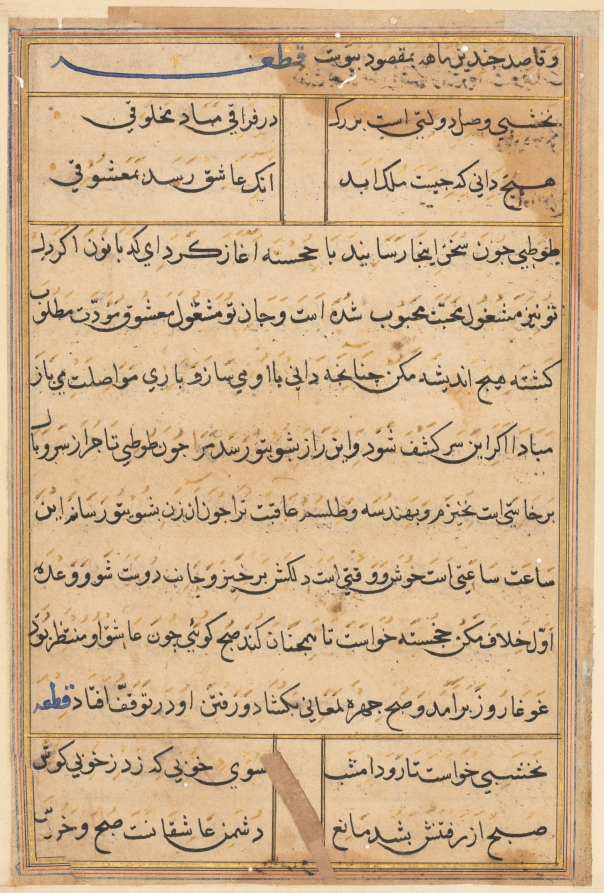 و قاصد چندین ماهه بمقصود پیوست قطعه
نخشبی وصل دولتی است بزرک در فراقی مباد مخلوقی
هیچ دانی که چیست ملک ابد انک عاشق رسد بمعشوقی
طوطی چون سخن اینجا رسانید با خجسته آغاز کرد ای کدبانون اکر دل
تو نیز مشغول محبت محبوب شده است و جان تو مشغول معشوق و مودّت مطلوب
کشته هیچ اندیشه مکن چنانچه دانی با او می ساز و با ری مواصلت می باز
مبادا اکر این سر کشف شود و این راز بشوی تو رسد مرا چون طوطی تاجر از سر و بال
بر خاستی است بخیزم و بهندسه و طلسم عاقبت ترا چون ان زن بشوی تو رسانم این
ساعت ساعتی است خوش و وقتی است دلکش بر خیز و جانب دوست شو و وعده
اوّل خلاف مکن خجسته خواست تا همچنان کند صبح کوئی چون عاشق او منتظر بود
غوغا روز برامد و صبح چهره لمعانی بکشاد و رفتن او در توقفّ افتاد قطعه
نخشبی خواست تا رود امشب سوی خوبی که زد ز خوبی کوس
صبح از رفتنش بشد مانع دشمن عاشقانست صبح و